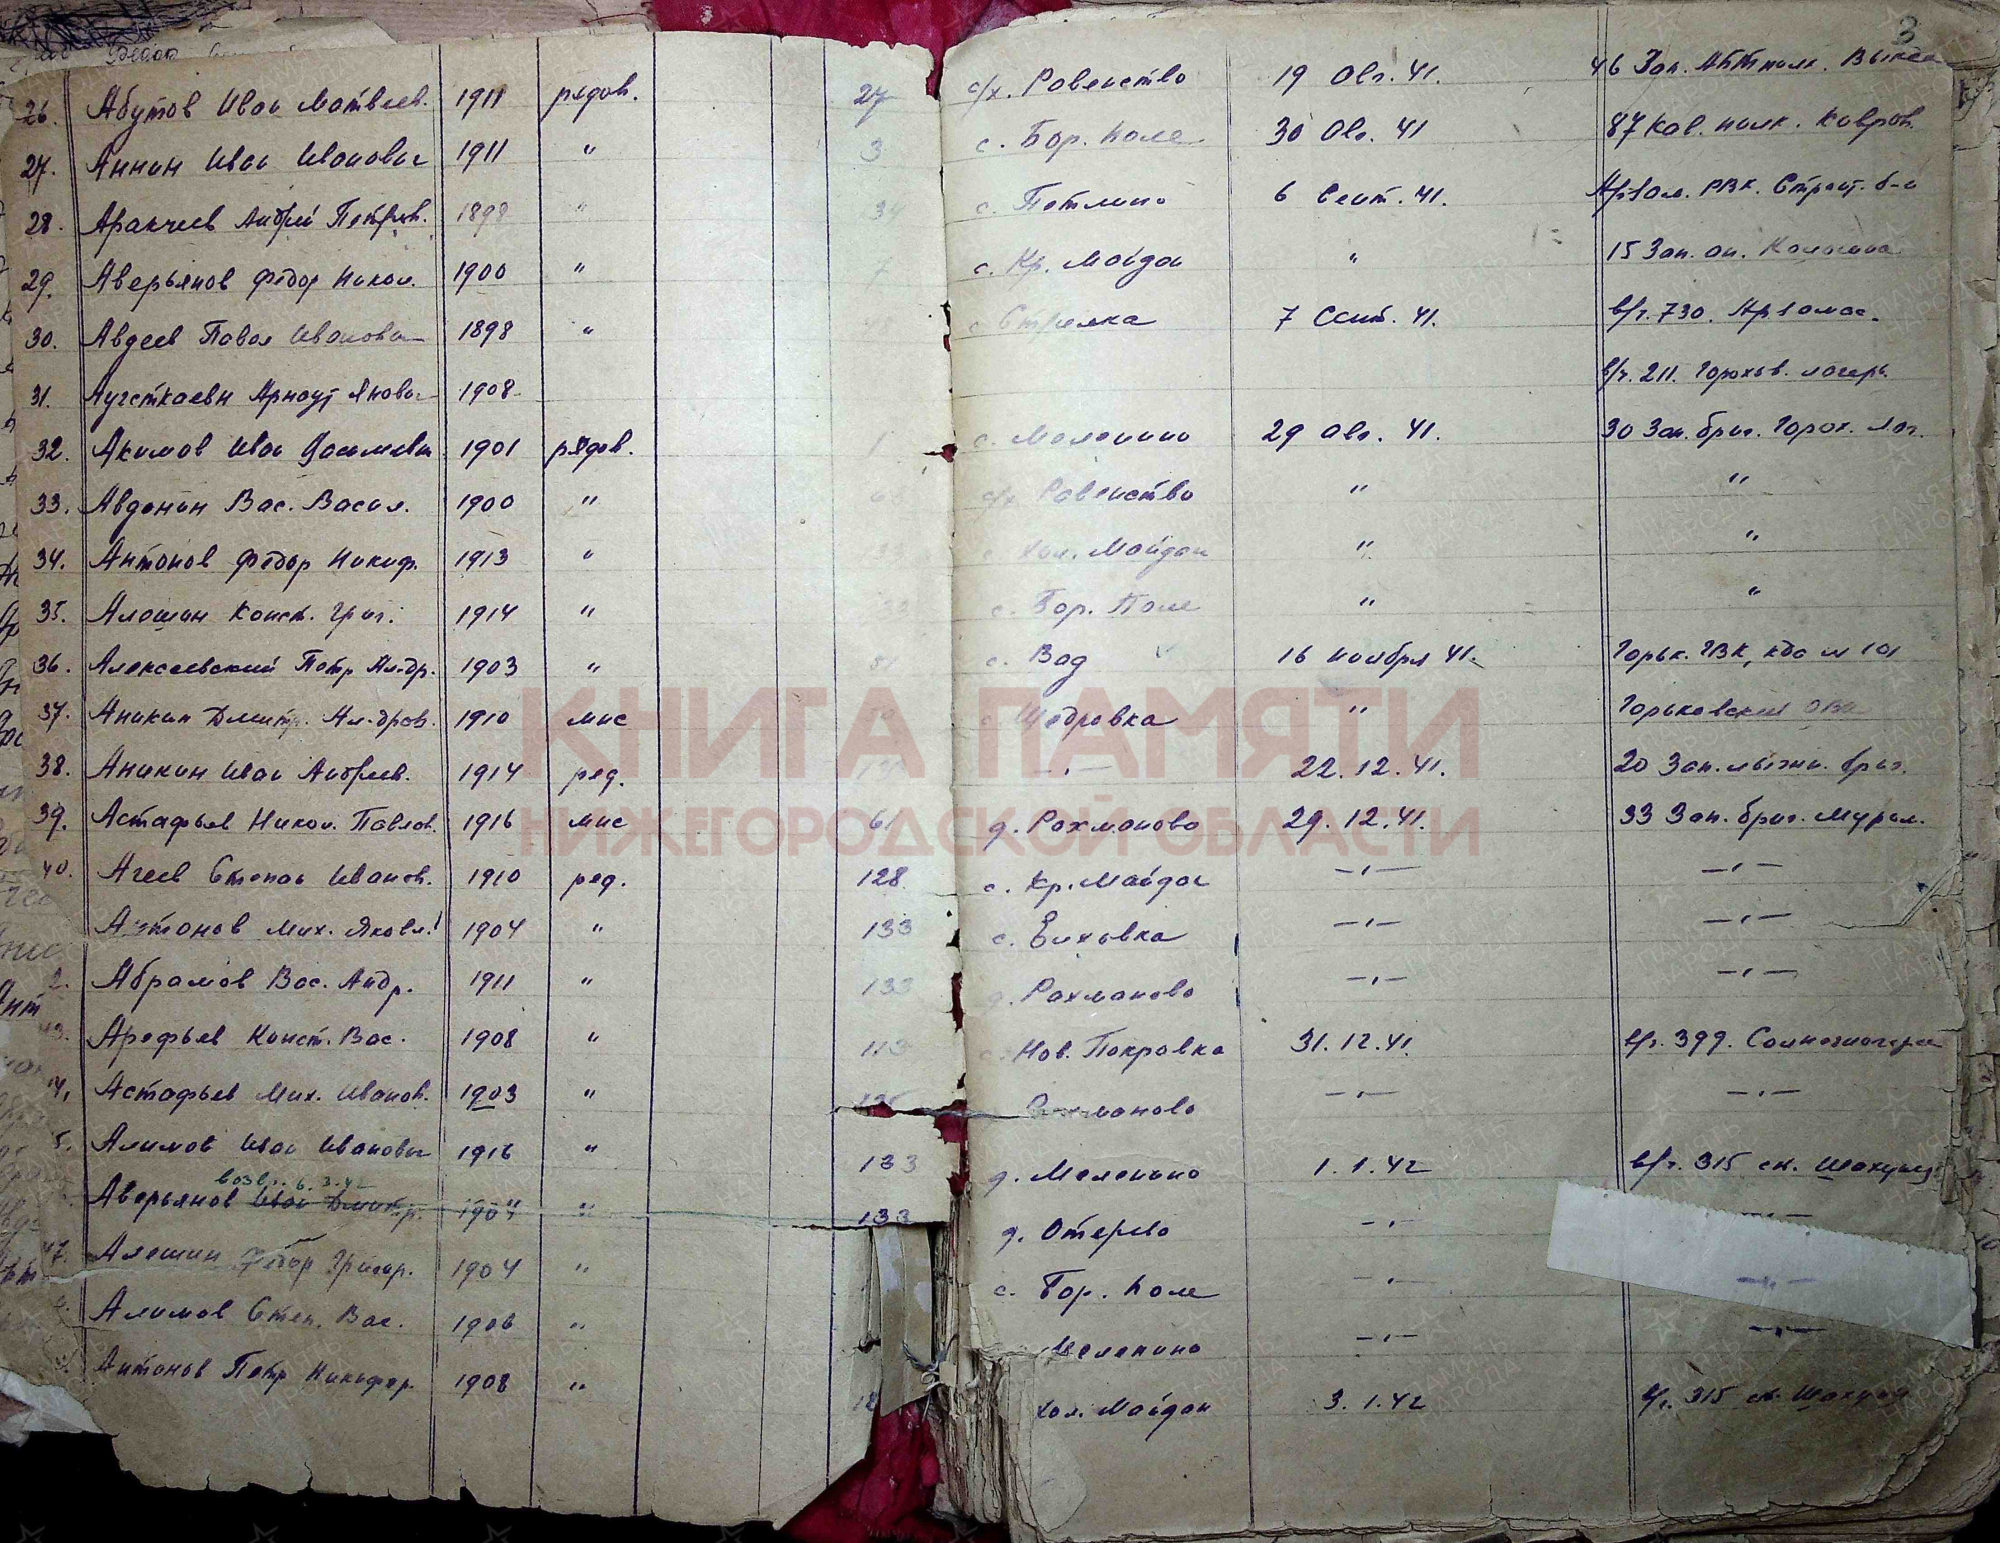 3
26. Абутов Иван Матвеев. 1911 рядов. 27 с/х. Равенство 19 Авг. 41. 46 Зап. Выкса
27. Аннин Иван Иванович 1911 " 3 с. Бор. Поле 30 Авг. 41 87 Кав. полк. Ковров.
28. Аракчеев Андрей Петров. 1898 " с. Петлино 6 Сент. 41. Арзам. РВК. Строит. б-н
29. Аверьянов Федор Никол. 1900 " 7 с. Кр. Майдан " 15 Зап. ап.
30. Авдеев Павел Иванович 1898 " с Стрелка 7 Сент. 41. в/ч. 730. Арзамас.
31. Арнаут Янович 1908 в/ч. 211. Горохов. лагерь
32. Акимов Иван 1901 рядов. 1 с. Меленино 29 Авг. 41. 30 Зап. бриг. Горох. лаг.
33. Авдонин Вас. Васил. 1900 " с/х Равенство " "
34. Антонов Федор Никиф. 1913 " с Хол. Майдан " "
35. Алешин Конст. Григ. 1914 " с. Бор. Поле " "
36. Алексеевский Петр Ал-др. 1903 " 81 с. Вад 16 ноября 41. Горьк. ГВК,
37. Аникин Дмитр. Ал-дров. 1910 мнс с. Щедровка " Горьковский
38. Аникин Иван Андреев. 1914 ряд. —,— 22.12.41. 20 Зап. лыжн. бриг.
39. Астафьев Никол. Павлов. 1916 мнс 61 д. Рахманово 29.12.41. 33 Зап. бриг. Муром.
40. Агеев Степан Иванов. 1910 ряд. 128 с. Кр. Майдан —,— —,—
Антонов Мих. Яковл. 1904 " 133 с. Елховка —,— —,—
2. Абрамов Вас. Андр. 1911 " 133 д. Рахманово —,— —,—
43. Арефьев Конст. Вас. 1908 " 113 с. Нов. Покровка 31.12.41. в/ч. 399. Солнечногорск
4. Астафьев Мих. Иванов. 1903 " Рахманово —,— —,—
5. Алимов Иван Иванович 1916 " 133 д. Меленино 1.1.42 в/ч. 315 ст. Шахунья
возвр. 6.3.42
Аверьянов Иван Дмитр. 1904 " 133 д. Отерево —,— —,—
47. Алешин Федор Григор. 1904 " с. Бор. Поле —,— —,—
Алимов Степ. Вас. 1906 " Меленино —,— —,—
Антонов Петр Никифор. 1908 " Хол. Майдан 3.1.42 в/ч. 315 ст. Шахунья
КНИГА ПАМЯТИ
НИЖЕГОРОДСКОЙ ОБЛАСТИ